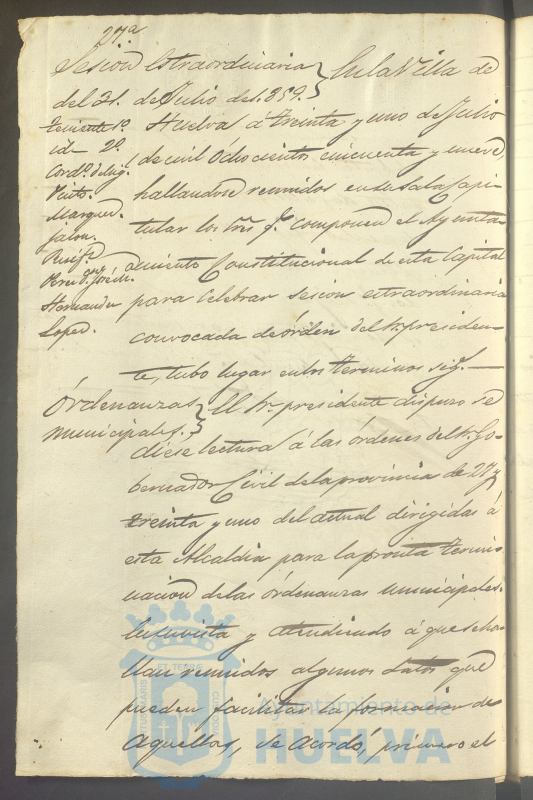 27ª
Sesion Estraordinaria
del 31. de Julio de 1.859.
Teniente 1º
id. 2º
Vento.
Marquez.
Garon.
Perez Dn José de
Hernandez
Lopez.
En la Villa de
Huelva a treinta y uno de Julio
de mil ochocientos cincuenta y nueve,
hallandose reunidos en su Sala Capi-
tular los Sres q. componen el Ayunta-
miento Constitucional de esta Capital
para celebrar sesion estraordinaria
convocada de órden del Sr. presiden-
te, tubo lugar en los terminos sigs.
Órdenanzas
municipales.
El Sr. presidente dispuso se
diese lectura á las órdenes del Sr. Go-
bernador Civil de la provincia de 27 y
treinta y uno del actual dirigidas á
esta Alcaldia para la pronta termi-
nacion de las órdenanzas municipales.
En su vista y atendiendo á que se ha-
llan reunidos algunos datos que
pueden facilitar la formacion de
aquellas, se acordó, primero el
Ayuntamiento de
HUELVA